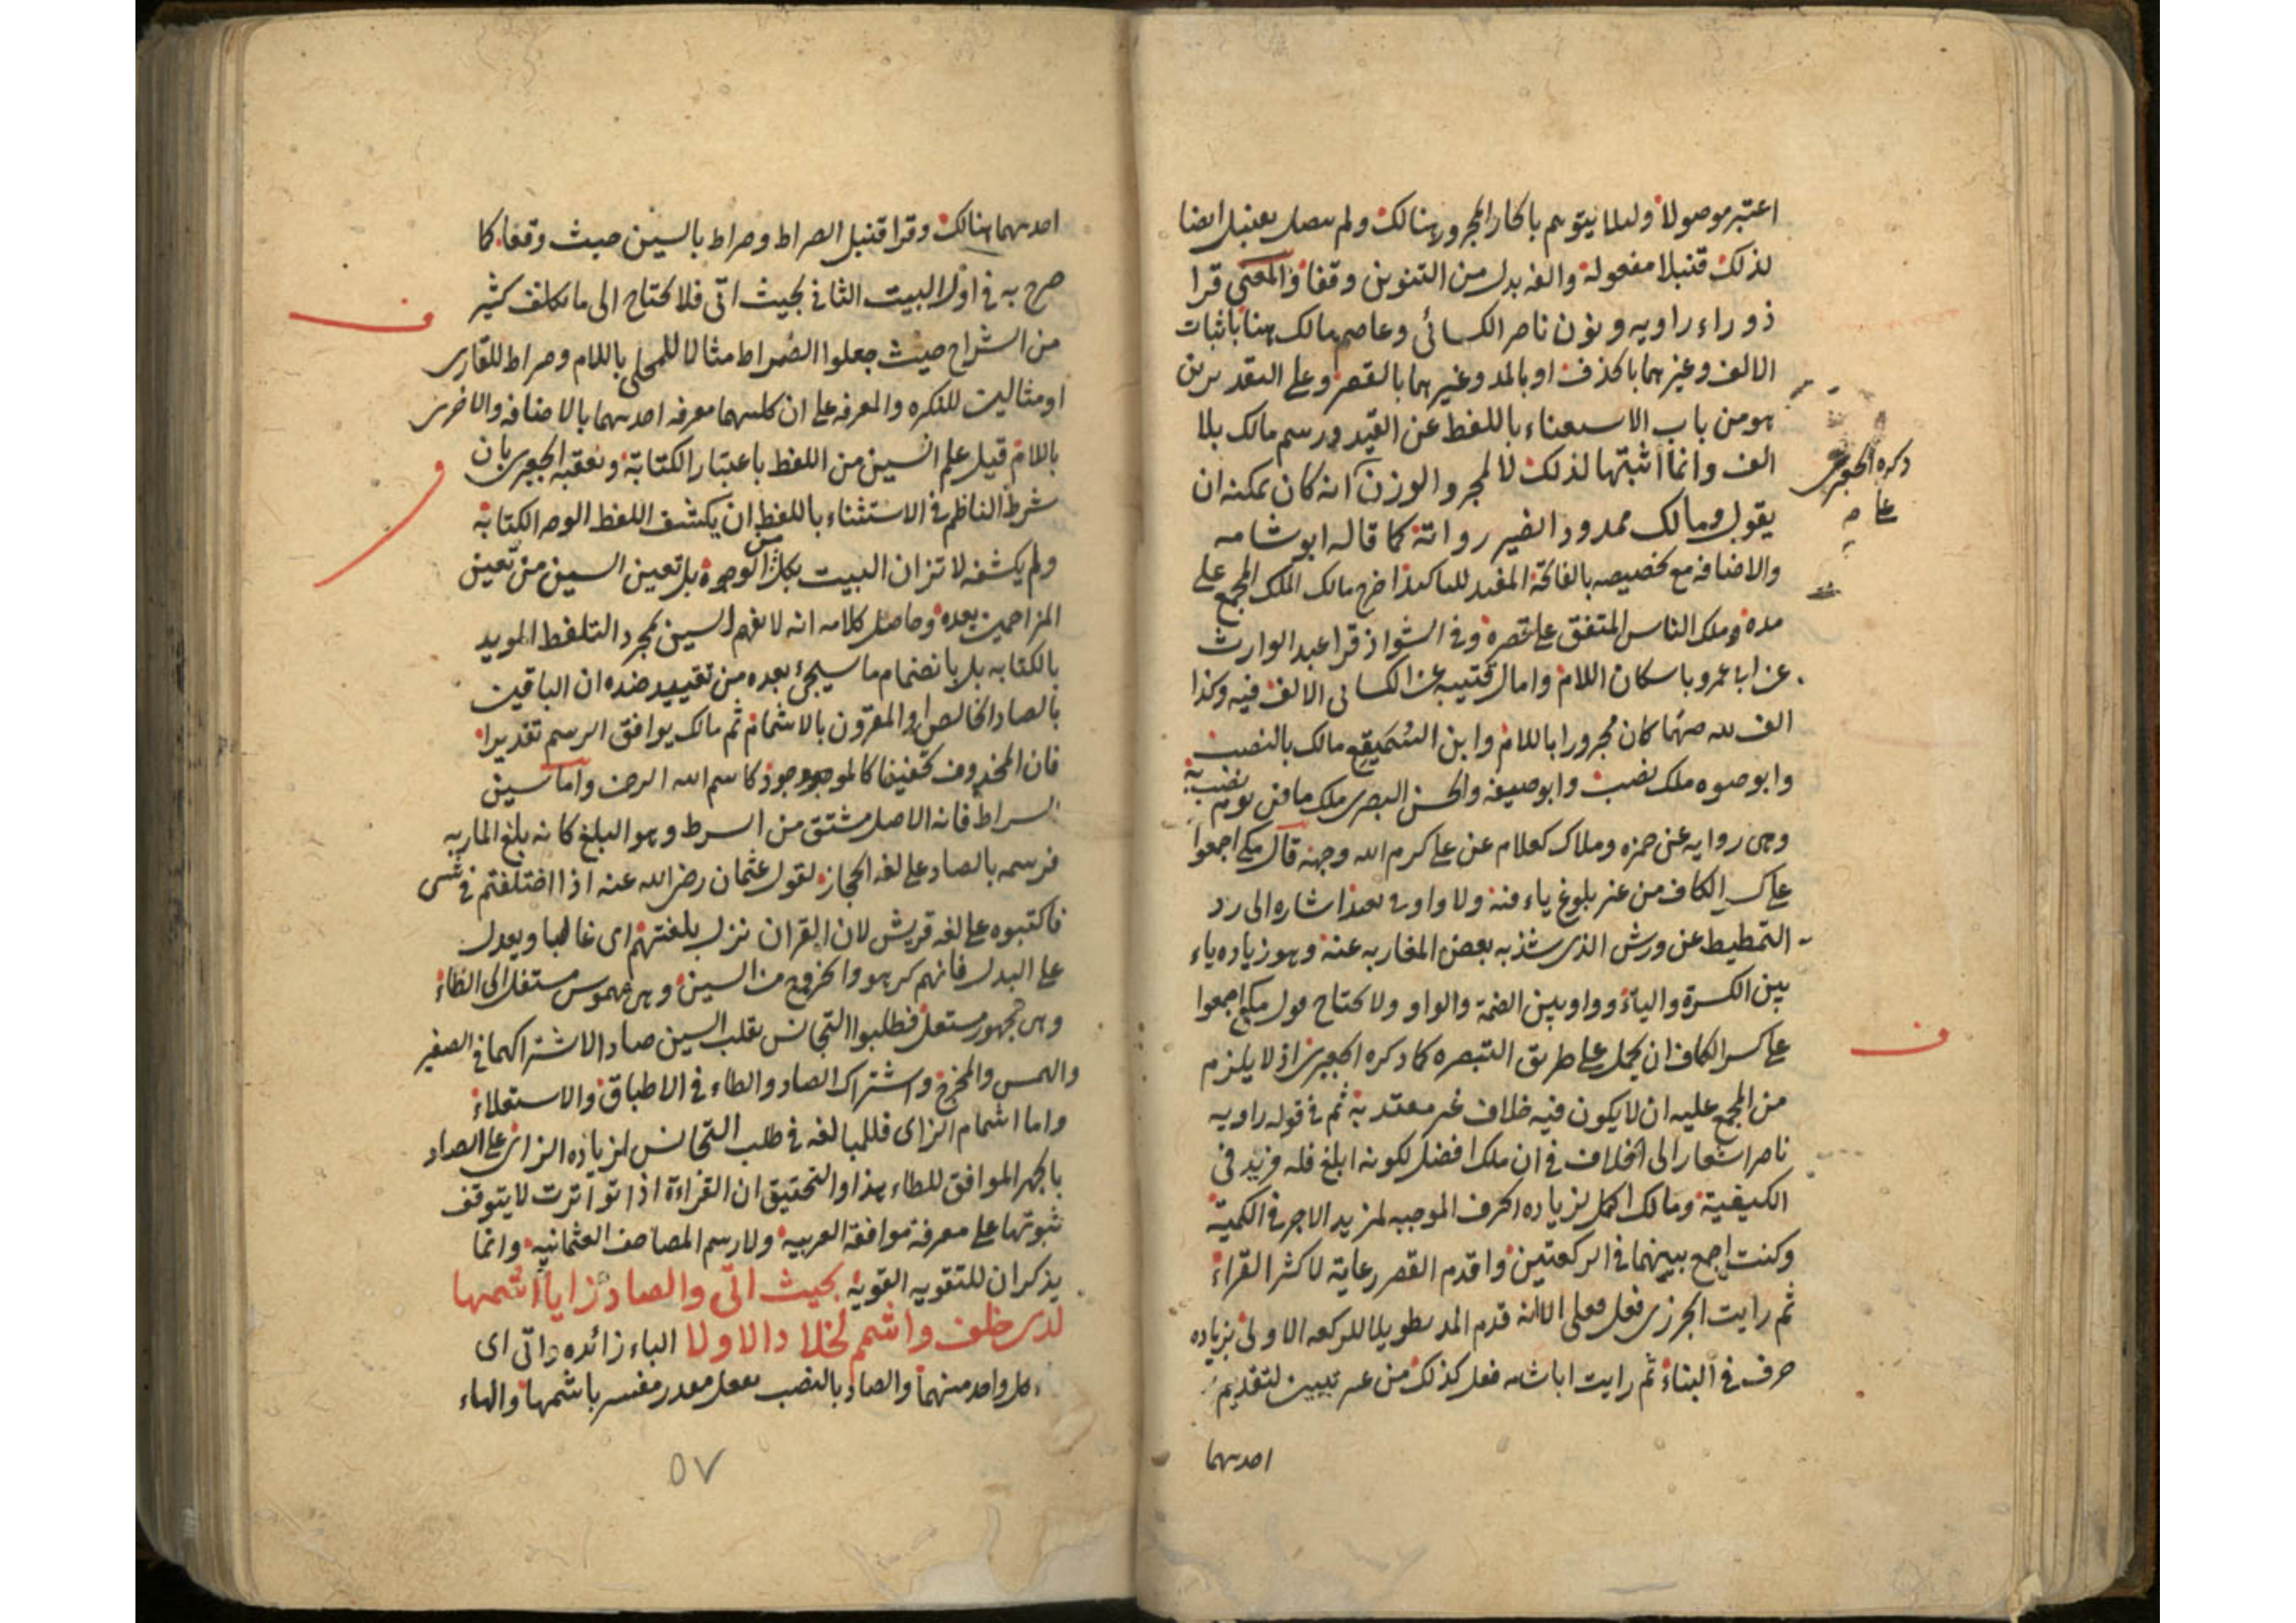 اعتبر موصولا ولئلا يتوهم بالجار المجرور هنالك ولم يتصل بقنبل ايضا
لذلك قنبلا مفعوله والفه بدل من التنوين وقفا والمعنى قرا
ذو راء راويه ونون ناصر الكسائي وعاصم مالك هنا باثبات
الالف وغيرهما بالحذف او بالمد وغيرهما بالقصر وعلى التقديرين
هو من باب الاستغناء باللفظ عن القيد ورسم مالك بلا
الف وانما اثبتها لذلك لا لمجرد الوزن انه كان يمكنه ان
يقول ومالك ممدود رواته كما قاله ابو شامه
والاضافه مع تخصيصه بالفاتحة المفيد للتاكيد اخرج مالك الملك المجمع على
مده وملك الناس المتفق على قصره وفى الشواذ قرا عبد الوارث
عن ابى عمرو باسكان اللام وامال قتيبه عن الكسائى الالف فيه وكذا
الف لله حيثما كان مجرورا باللام وابن السميقع مالك بالنصب
وابو حيوه ملك بنصب وابو حنيفه والحسن البصرى ملك ماض يوم بنصبه
وهى روايه عن حمزه وملاك كعلام عن على كرم الله وجهه قال مكى اجمعوا
على كسر الكاف من غير بلوغ ياء منه ولا واو فى نعبد اشاره الى رد
التمطيط عن ورش الذى شذ به بعض المغاربه عنه وهو زياده ياء
بين الكسرة والياء وواو بين الضمة والواو ولا يحتاج قول مكى اجمعوا
على كسر الكاف ان يحمل على طريق التبصره كما ذكره الجعبرى اذ لا يلزم
من المجمع عليه ان لا يكون فيه خلاف غير معتد به ثم فى قوله راويه
ناصر اشعار الى الخلاف فى ان ملك افضل لكونه ابلغ فله مزيد فى
الكيفية ومالك اكمل لزياده الحرف الموجبه لمزيد الاجر فى الكمية
وكنت اجمع بينهما فى الركعتين واقدم القصر رعاية لاكثر القراء
ثم رايت الجزرى فعل فعلى الا انه قدم المد تطويلا للركعه الاولى بزياده
حرف فى البناء ثم رايت ابا شامه فعل كذلك من غير تبيين لتقديم
احدهما
ذكره الجعبرى
احدهما هنالك وقرا قنبل الصراط وصراط بالسين حيث وقعا كما
صرح به فى اول البيت الثانى بحيث اتى فلا يحتاج الى ما تكلف كثير
من الشراح حيث جعلوا الصراط مثالا للمحلى باللام وصراط للعارى
او مثالين للنكره والمعرفه على ان كليهما معرفه احدهما بالاضافه والاخرى
باللام قيل علم السين من اللفظ باعتبار الكتابة وتعقبه الجعبرى بان
شرط الناظم فى الاستثناء باللفظ ان يكشف اللفظ الوجه الكتابة
ولم يكشفه لاتزان البيت بكل من الوجوه بل تعين السين من تعين
المزاحمين بعده وحاصل كلامه انه لا يفهم السين بمجرد التلفظ المويد
بالكتابه بل بانضمام ما سيجئ بعده من تقييد ضده ان الباقين
بالصاد الخالص او المقرون بالاشمام ثم مالك يوافق الرسم تقديرا
فان المحذوف تخفيفا كالموجود كاسم الله الرحمن واما سين
السراط فانه الاصل مشتق من السرط وهو البلع كانه بلع الماربه
فرسمه بالصاد على لغه الحجاز لقول عثمان رضى الله عنه اذا اختلفتم فى شئ
فاكتبوه على لغه قريش لان القران نزل بلغتهم اى غالبا ويعدل
على البدل فانهم كرهوا الخروج من السين وهى مهموس مستفل الى الطاء
وهى مجهور مستعل فطلبوا التجانس بقلب السين صادا لاشتراكهما فى الصفير
والهمس والمخرج واشتراك الصاد والطاء فى الاطباق والاستعلاء
واما اشمام الزاى فللمبالغه فى طلب التجانس لزياده الزاى على الصاد
بالجهر الموافق للطاء هذا والتحقيق ان القراءة اذا تواترت لا يتوقف
ثبوتها على معرفة موافقة العربيه ولا رسم المصاحف العثمانيه وانما
يذكران للتقويه القوية بحيث اتى والصاد زايا اشمها
لدى خلف واشمم لخلاد الاولا الباء زائده واتى اى
كل واحد منهما والصاد بالنصب بفعل مقدر مفسر باشمها والهاء
٥٧